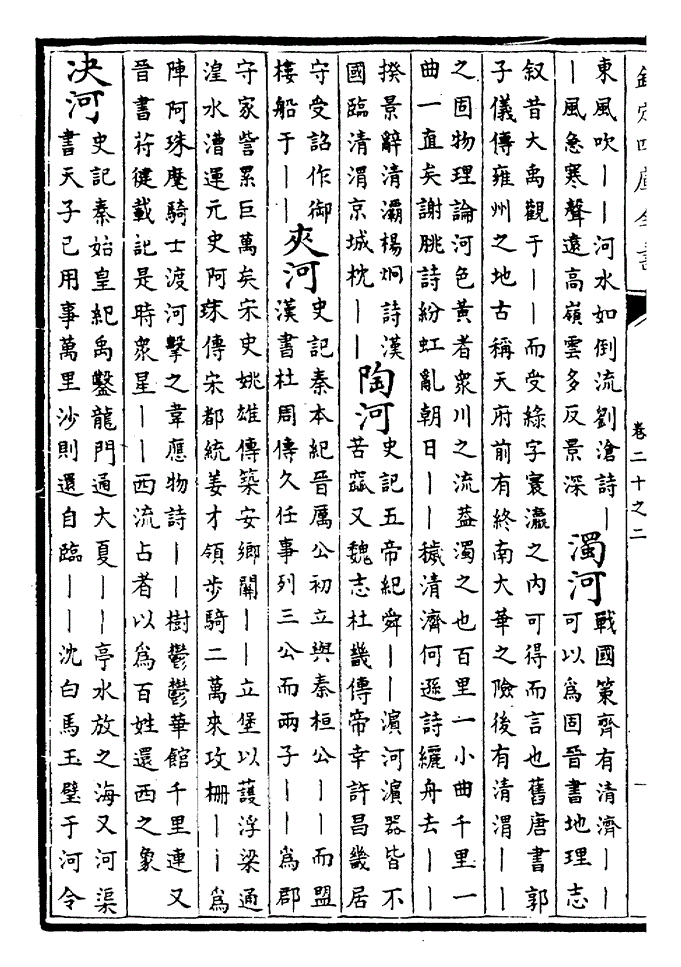 欽定四庫全書
卷二十之二
東風吹――河水如倒流劉滄詩―
―風急寒聲遠高嶺雲多反景深
濁河
戰國策齊有清濟――
可以為固晉書地理志
叙昔大禹觀于――而受綠字寰瀛之内可得而言也舊唐書郭
子儀傳雍州之地古稱天府前有終南大華之險後有清渭――
之固物理論河色黄者衆川之流葢濁之也百里一小曲千里一
曲一直矣謝朓詩紛虹亂朝日――穢清濟何遜詩纚舟去――
揆景辭清灞楊炯詩漢
國臨清渭京城枕――
陶河
史記五帝紀舜――濵河濵器皆不
苦窳又魏志杜畿傳帝幸許昌畿居
守受詔作御
樓船于――
夾河
史記秦本紀晉厲公初立與秦桓公――而盟
漢書杜周傳久任事列三公而兩子――為郡
守家訾累巨萬矣宋史姚雄傳築安鄉關――立堡以護浮梁通
湟水漕運元史阿珠傳宋都統姜才領步騎二萬來攻柵――為
陣阿珠麾騎士渡河擊之韋應物詩――樹鬱鬱華館千里連又
晉書苻健載記是時衆星――西流占者以為百姓還西之象
决河
史記秦始皇紀禹鑿龍門通大夏――亭水放之海又河渠
書天子已用事萬里沙則還自臨――沈白馬玉璧于河令